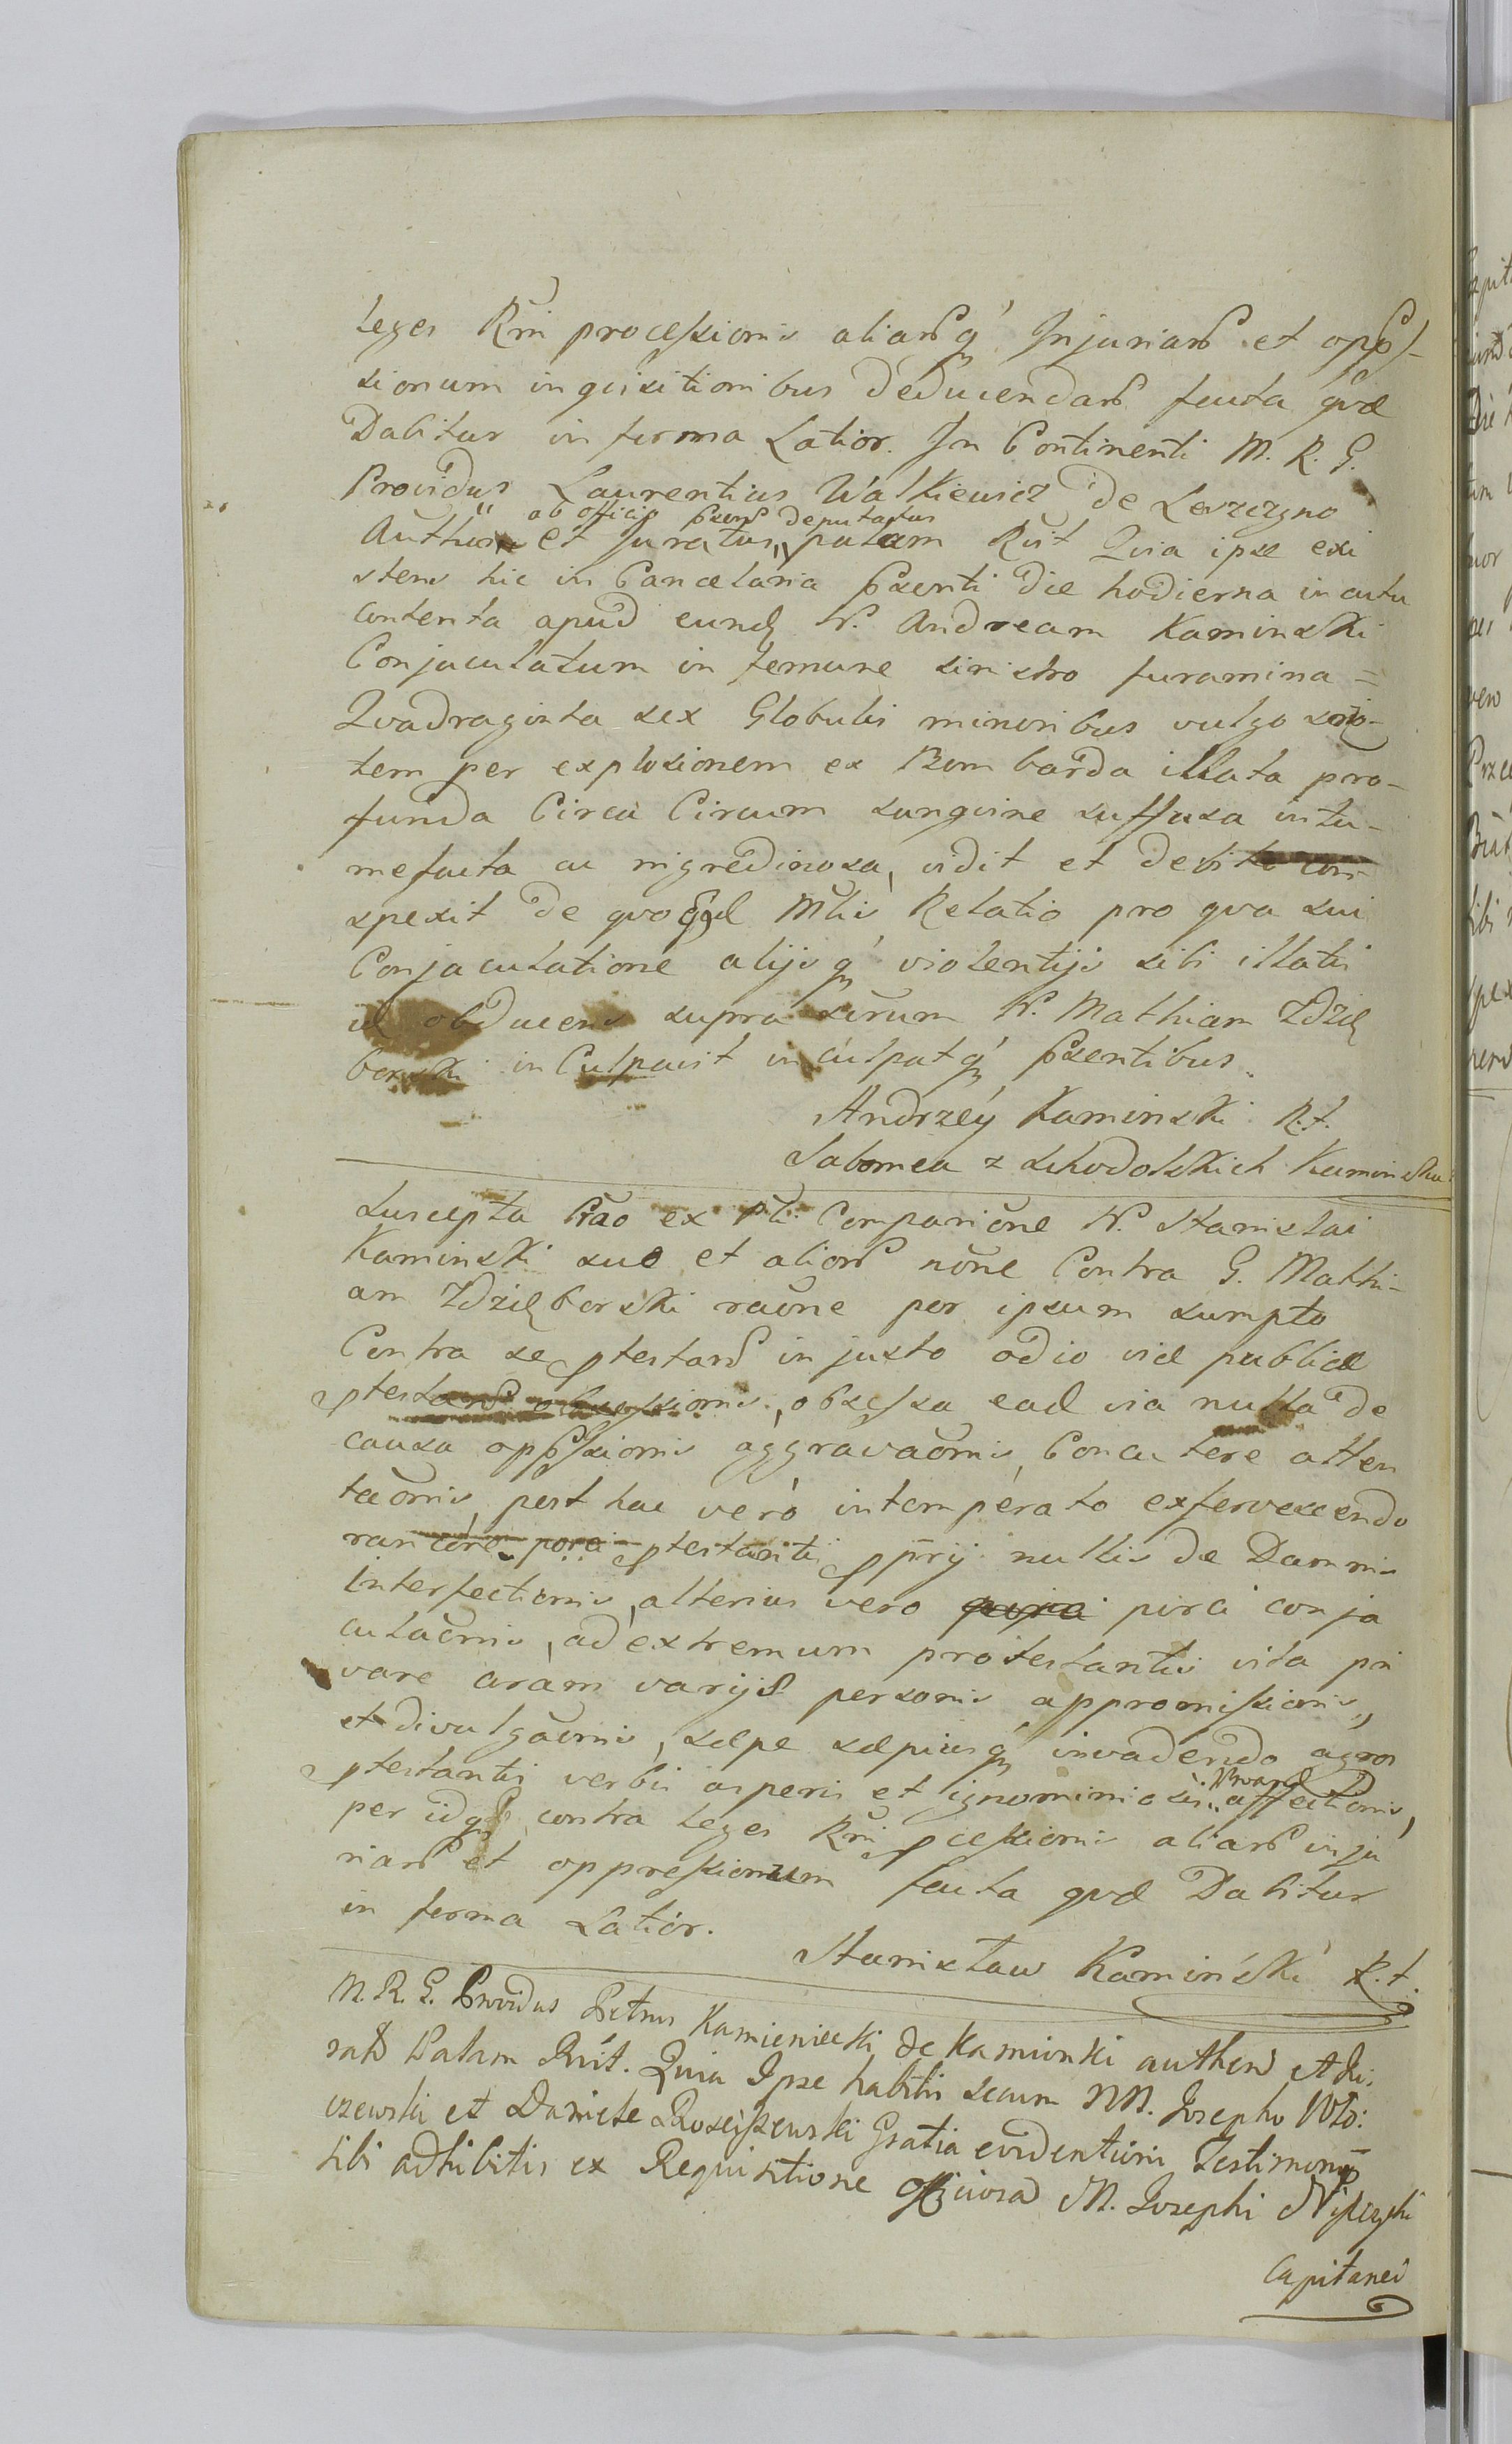 leges Rni processionis aliarq Injuriar et opps-
sionum inquisitionibus deducendar facta qvæ
Dabitur in forma Latior. In Continenti M. R. G.
Providus Laurentius Walkiewicz de Leszczyno
ab officio pxens deputatus
Authen et Juratus, palam Rit Quia ipse exi
stens hic in Cancelaria pxenti die hodierna in actu
contenta apud eund N. Andream Kaminski
Conjaculatum in femure sinistro furamina =
Qvadraginta sex Globulis minoribus vulgo szro-
tem per explosionem ex Bombarda illata pro-
funda Circa Circum sangvine suffusa intu-
mefacta ac nigredinosa, vidit et debite con
spexit de qvo Mlis Relatio pro qva sui
Conjaculatione alijsq violentijs sibi illatis
obducens supra scrum N. Mathiam Zdzię
borski inculpavit inculpatq pxentibus.
Andrzéy Kaminski R. t.
Salomea z Suhodolskich Kaminska
Suscepta Prao ex Pli Comparione N. Stanislai
Kaminski suo et alior none Contra G. Mathi-
am Zdzięborski raone per ipsum sumpto
Contra se ptestand injusto odio viæ publicæ
ptestand obsessionis, obsessa ead via nulla de
causa oppssionis aggravaonis, Concutere atten
taonis, post hac vero intemperato exfervescendo
rancore porci ptestantis pprij nullis de Damnis
interfectionis, alterius vero porci conja
culaonis, ad extremum protestantis vita pri
vare coram varijs personis appromissionis,
et divulgaonis, sæpe sæpiusq invadendo agros
ptestantis verbis asperis et ignominiosis affectionis,
per idq contra leges Rni pcessionis aliar inju
riar et oppressionum facta qvæ Dabitur
in forma Latior.
Stanisław Kamiński R. t.
M. R. G. Providus Petrus Kamieniecki de Kamionki authen et Ju:
rats Palam Rit. Quia Ipse habitis secum NN. Josepho Wło:
czewski et Daniele Rosciszewski Gratia evidentioris Testimonij
sibi adhibitis ex Requisitione officiosa M. Josephi Niszczycki
Capitanei